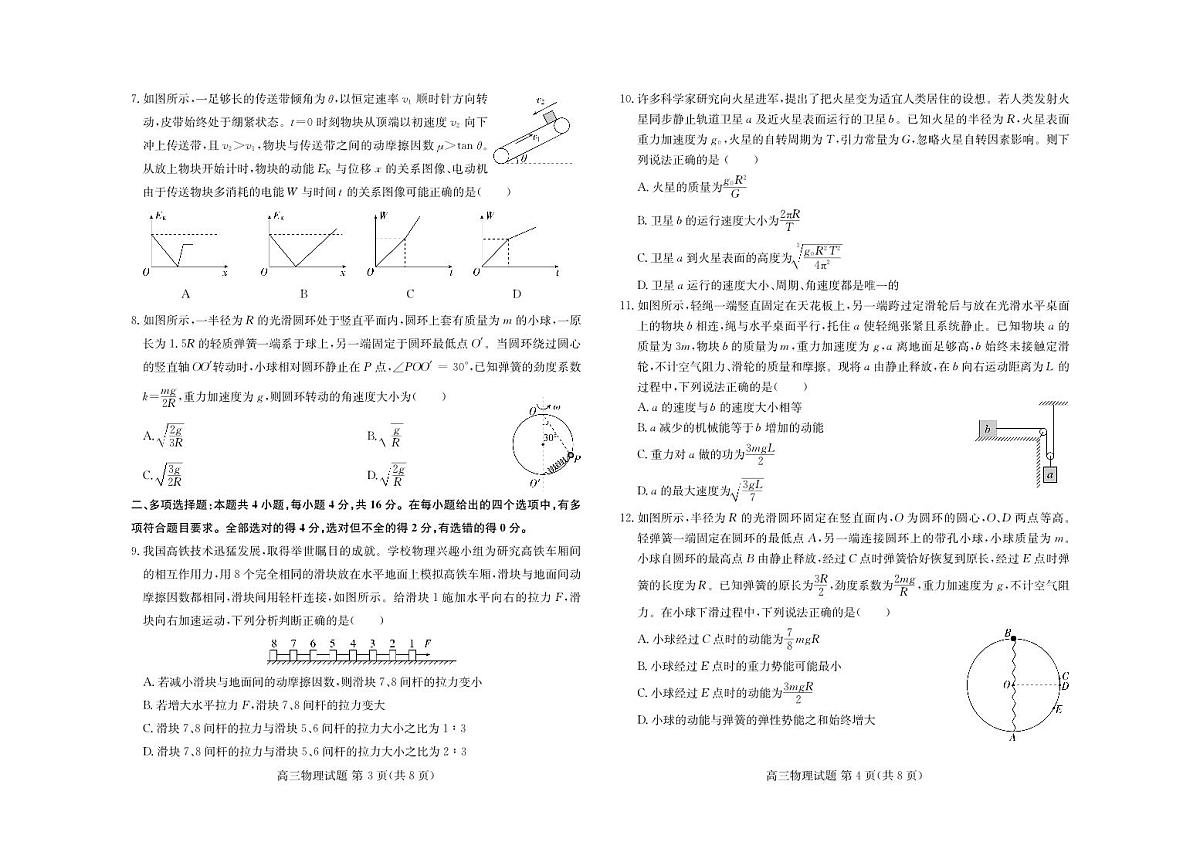 7. 如图所示,一足够长的传送带倾角为θ,以恒定速率 v₁ 顺时针方向转
动,皮带始终处于绷紧状态。t=0 时刻物块从顶端以初速度 v₂ 向下
冲上传送带,且 v₂>v₁,物块与传送带之间的动摩擦因数 μ>tan θ。
从放上物块开始计时,物块的动能 Eₖ 与位移 x 的关系图像、电动机
由于传送物块多消耗的电能 W 与时间 t 的关系图像可能正确的是(  )
v₂
v₁
θ
Eₖ
O
x
A
Eₖ
O
x
B
W
O
t
C
W
O
t
D
8. 如图所示,一半径为 R 的光滑圆环处于竖直平面内,圆环上套有质量为 m 的小球,一原
长为 1.5R 的轻质弹簧一端系于球上,另一端固定于圆环最低点 O′。当圆环绕过圆心
的竖直轴 OO′转动时,小球相对圆环静止在 P 点,∠POO′ = 30°,已知弹簧的劲度系数
k=mg/2R,重力加速度为 g,则圆环转动的角速度大小为(  )
A. √(2g/3R)
B. √(g/R)
C. √(3g/2R)
D. √(2g/R)
O
ω
30°
P
O′
二、多项选择题:本题共 4 小题,每小题 4 分,共 16 分。在每小题给出的四个选项中,有多
项符合题目要求。全部选对的得 4 分,选对但不全的得 2 分,有选错的得 0 分。
9. 我国高铁技术迅猛发展,取得举世瞩目的成就。学校物理兴趣小组为研究高铁车厢间
的相互作用力,用 8 个完全相同的滑块放在水平地面上模拟高铁车厢,滑块与地面间动
摩擦因数都相同,滑块间用轻杆连接,如图所示。给滑块 1 施加水平向右的拉力 F,滑
块向右加速运动,下列分析判断正确的是(  )
8 7 6 5 4 3 2 1 F
A. 若减小滑块与地面间的动摩擦因数,则滑块 7、8 间杆的拉力变小
B. 若增大水平拉力 F,滑块 7、8 间杆的拉力变大
C. 滑块 7、8 间杆的拉力与滑块 5、6 间杆的拉力大小之比为 1∶3
D. 滑块 7、8 间杆的拉力与滑块 5、6 间杆的拉力大小之比为 2∶3
高三物理试题 第 3 页(共 8 页)
10. 许多科学家研究向火星进军,提出了把火星变为适宜人类居住的设想。若人类发射火
星同步静止轨道卫星 a 及近火星表面运行的卫星 b。已知火星的半径为 R,火星表面
重力加速度为 g₀,火星的自转周期为 T,引力常量为 G,忽略火星自转因素影响。则下
列说法正确的是(  )
A. 火星的质量为g₀R²/G
B. 卫星 b 的运行速度大小为2πR/T
C. 卫星 a 到火星表面的高度为∛(g₀R²T²/4π²)
D. 卫星 a 运行的速度大小、周期、角速度都是唯一的
11. 如图所示,轻绳一端竖直固定在天花板上,另一端跨过定滑轮后与放在光滑水平桌面
上的物块 b 相连,绳与水平桌面平行,托住 a 使轻绳张紧且系统静止。已知物块 a 的
质量为 3m,物块 b 的质量为 m,重力加速度为 g,a 离地面足够高,b 始终未接触定滑
轮,不计空气阻力、滑轮的质量和摩擦。现将 a 由静止释放,在 b 向右运动距离为 L 的
过程中,下列说法正确的是(  )
A. a 的速度与 b 的速度大小相等
B. a 减少的机械能等于 b 增加的动能
C. 重力对 a 做的功为3mgL/2
D. a 的最大速度为√(3gL/7)
b
a
12. 如图所示,半径为 R 的光滑圆环固定在竖直面内,O 为圆环的圆心,O、D 两点等高。
轻弹簧一端固定在圆环的最低点 A,另一端连接圆环上的带孔小球,小球质量为 m。
小球自圆环的最高点 B 由静止释放,经过 C 点时弹簧恰好恢复到原长,经过 E 点时弹
簧的长度为 R。已知弹簧的原长为3R/2,劲度系数为2mg/R,重力加速度为 g,不计空气阻
力。在小球下滑过程中,下列说法正确的是(  )
A. 小球经过 C 点时的动能为7/8mgR
B. 小球经过 E 点时的重力势能可能最小
C. 小球经过 E 点时的动能为3mgR/2
D. 小球的动能与弹簧的弹性势能之和始终增大
B
O
C
D
E
A
高三物理试题 第 4 页(共 8 页)